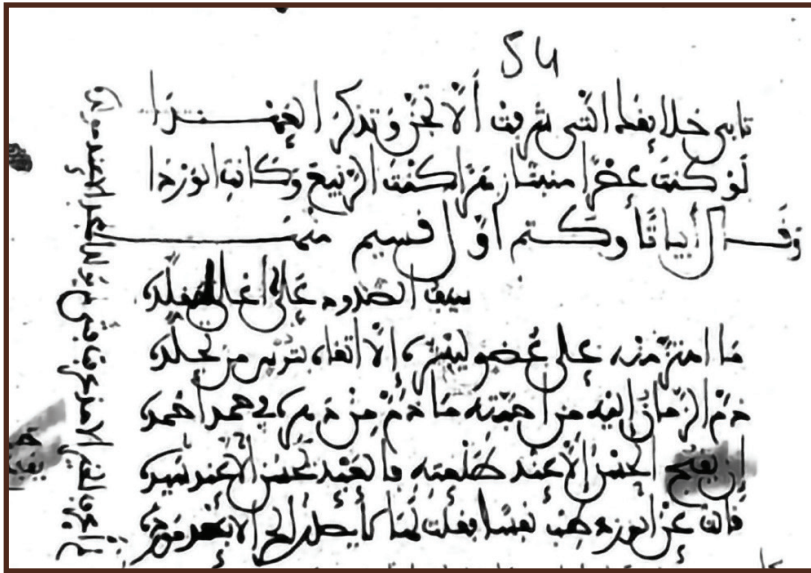 54
تابى خلايقك التي شرفت ألّا تحنّ وتذكر العهـدا
لو كنت عصرًا منبتا زهرًا كنت الرّبيع وكانت الوردا
وقـال أبياتًا وكتم أوّل قسيم منهـا
سيف الصدود على أعلى مقلّده
ما اهتز منه على عضو ليبتره إلّا اتقاه بترس من تجلّده
ذمّ الزّمان إليه من احبّته ما ذمّ من بدره في حمد أحمده
إن يقبح الحسن إلّا عند طلعته فالعبد يحسن إلّا عند سيده
قالت عن الورد طب نفسا فقلت لها لا يصدر الحر إلا بعد مورده